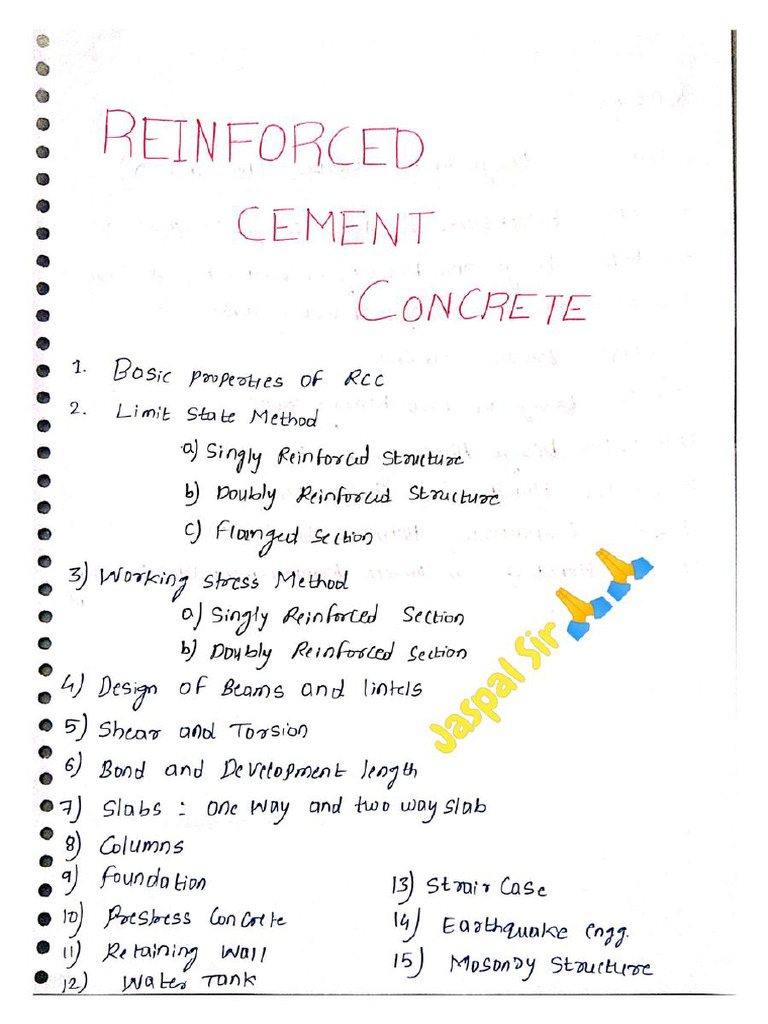 REINFORCED
CEMENT
CONCRETE
1. Basic properties of RCC
2. Limit State Method
a) Singly Reinforced Structure
b) Doubly Reinforced Structure
c) Flanged Section
3) Working stress Method
a) Singly Reinforced Section
b) Doubly Reinforced Section
4) Design of Beams and lintels
5) Shear and Torsion
6) Bond and Development length
7) Slabs : one way and two way slab
8) Columns
9) Foundation
10) Prestress Concrete
11) Retaining Wall
12) Water Tank
13) Strair Case
14) Earthquake engg.
15) Mosonry Structure
Jaspal Sir 🙏🙏